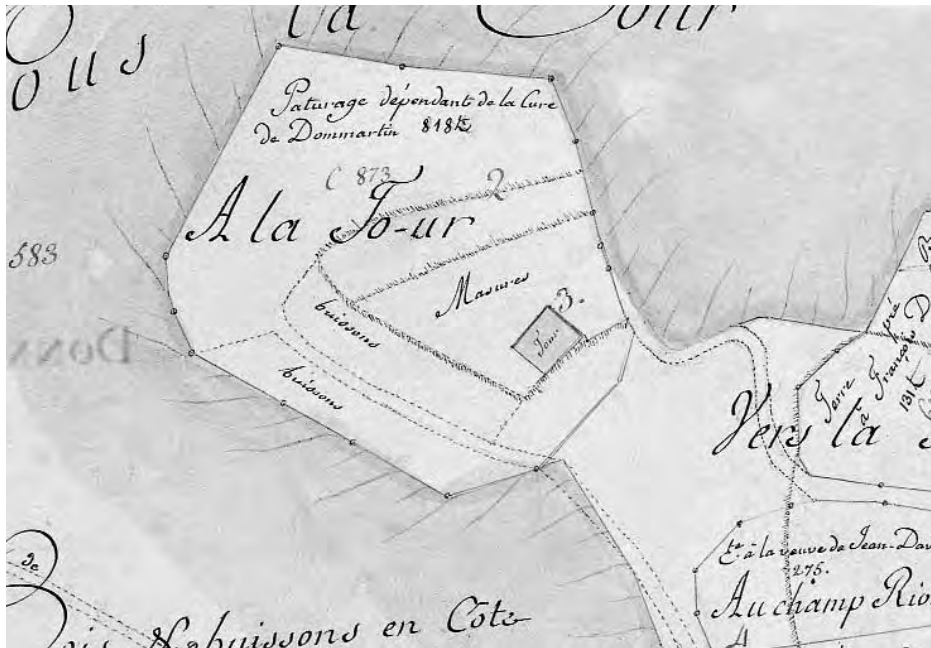 ous la Tour
Paturage dépendant de la Cure
de Dommartin 818
C 873
2
A la To-ur
583
Masures
3.
Tour
buissons
buissons
pré
Terre
à François D
131
Vers la
à la veuve de Jean-Dav
275.
Au champ Rio
4
de
Bois & buissons en Côte